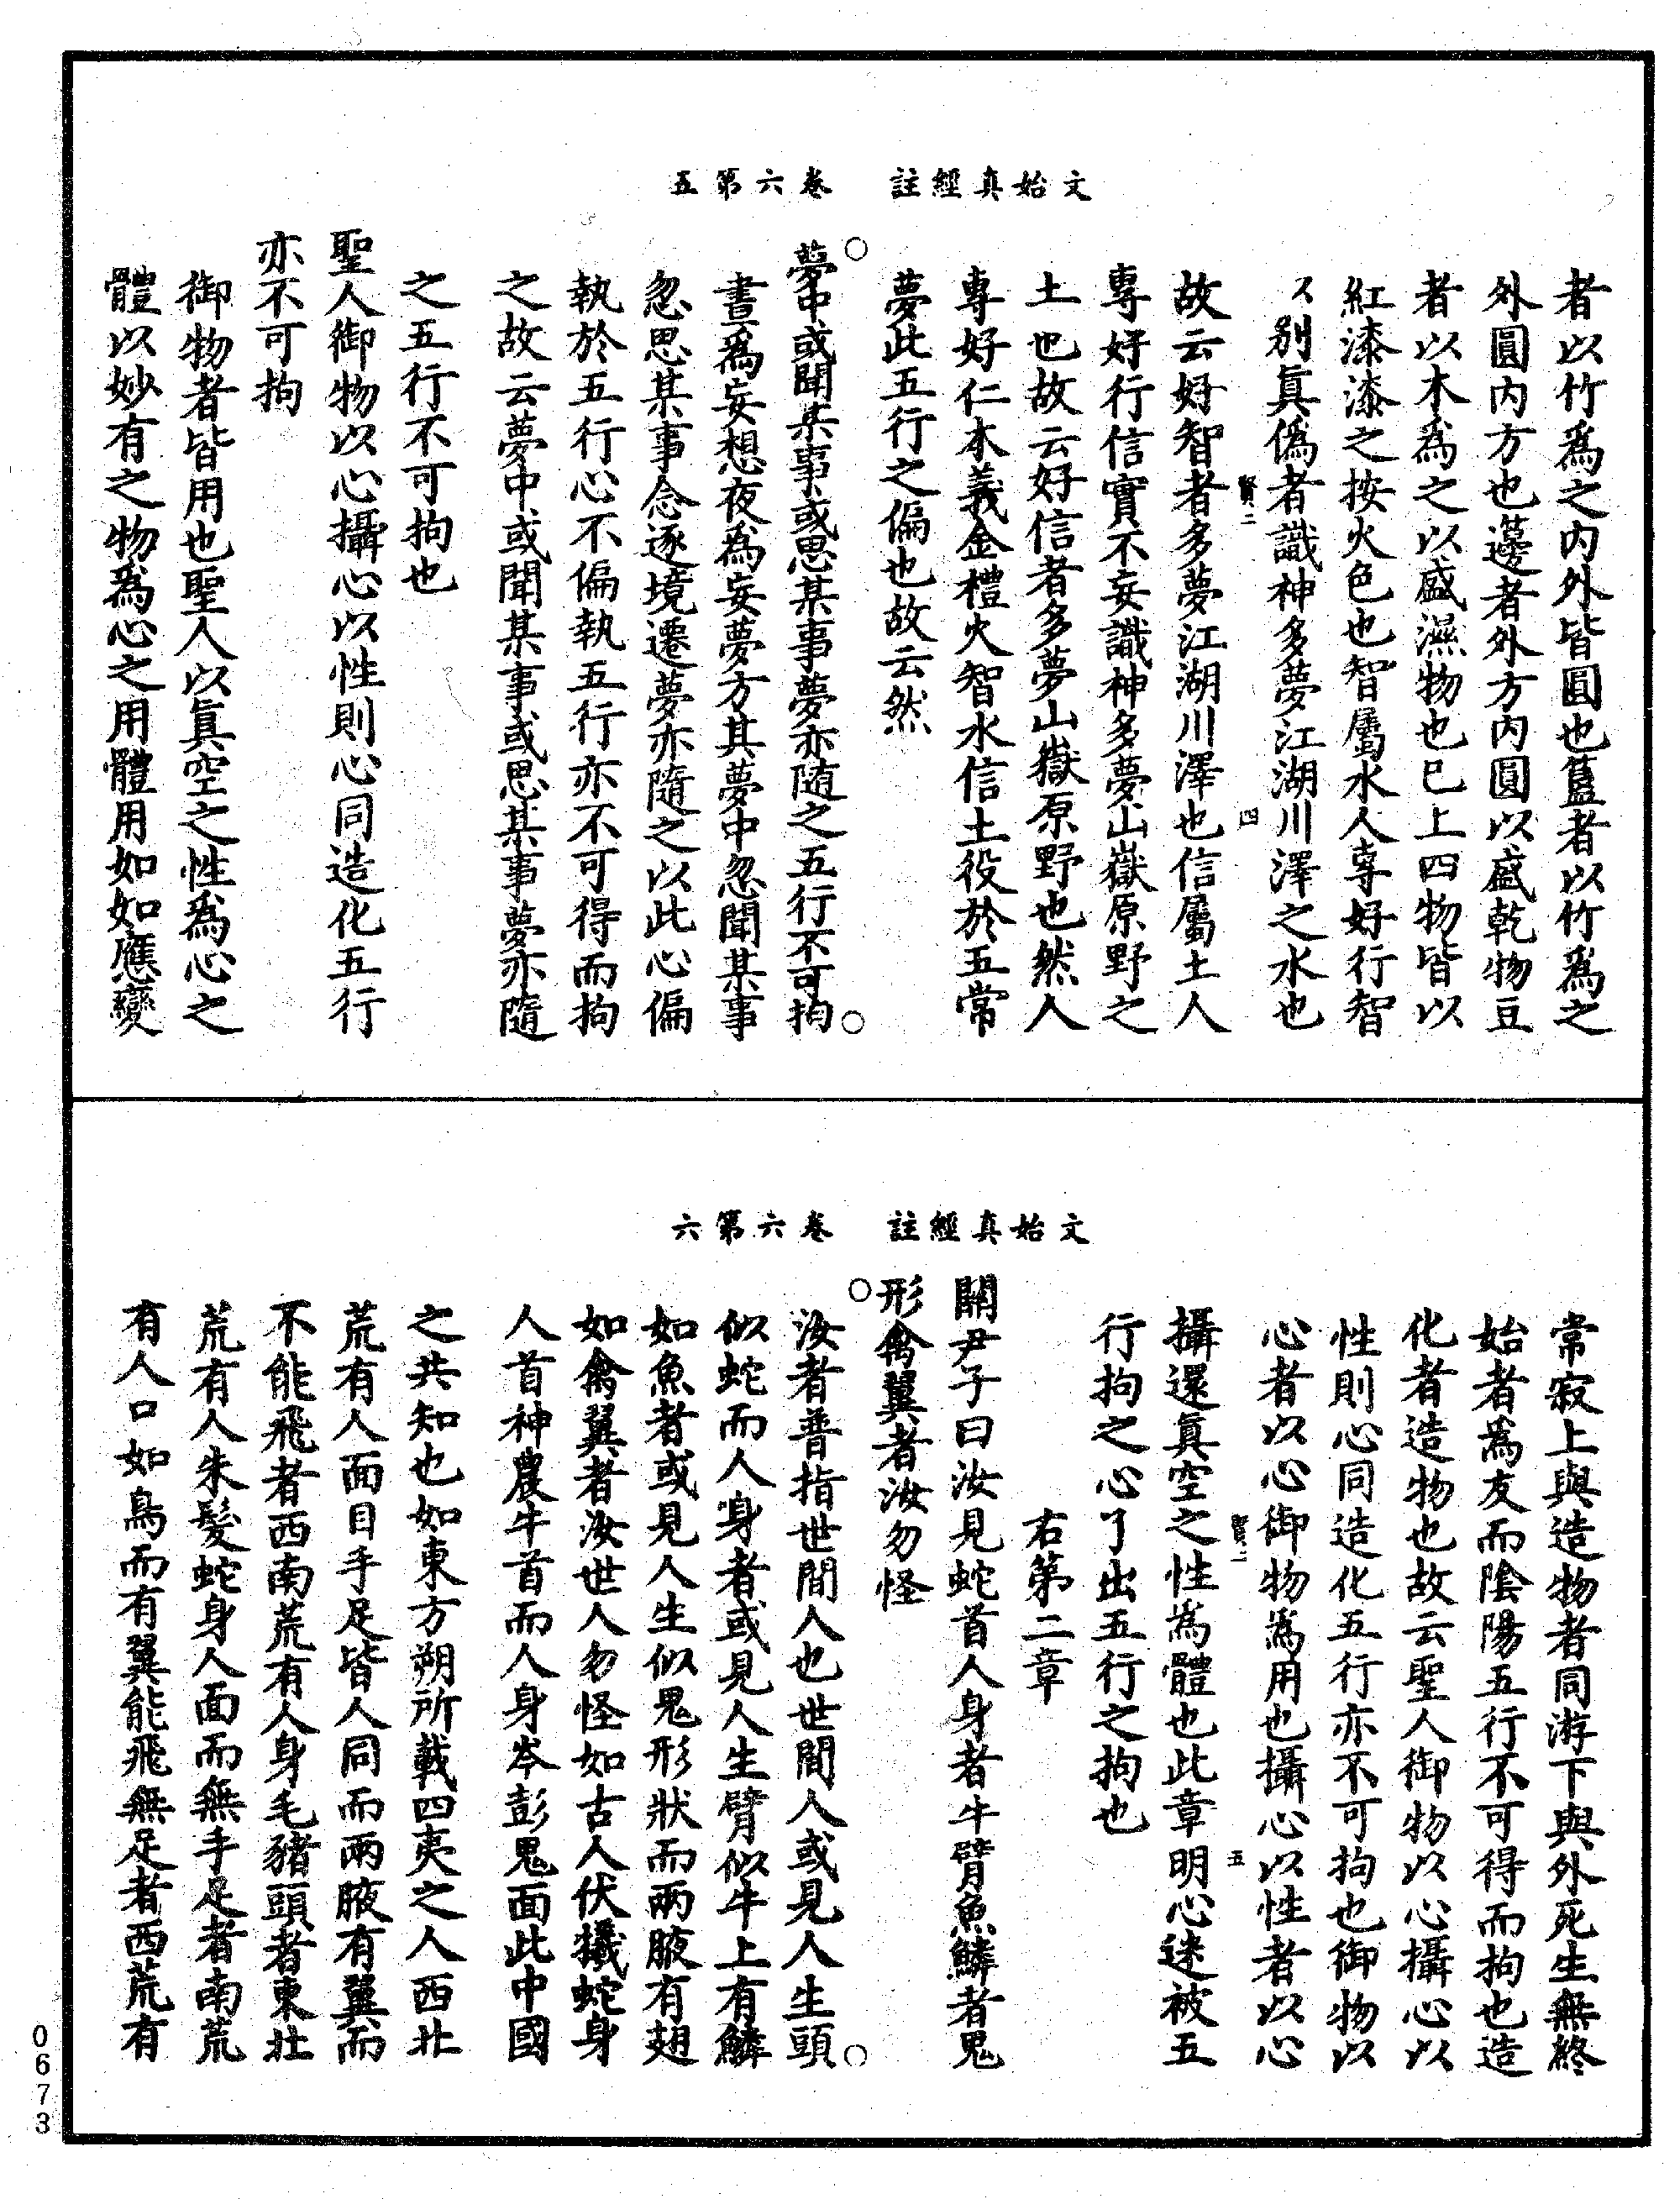 文始真經註　卷六第五
者以竹爲之内外皆圓也簠者以竹爲之
外圓内方也籩者外方内圓以盛乾物豆
者以木爲之以盛濕物也巳上四物皆以
紅漆漆之按火色也智屬水人專好行智
以別眞僞者識神多夢江湖川澤之水也
賢二　四
故云好智者多夢江湖川澤也信屬土人
專好行信實不妄識神多夢山嶽原野之
土也故云好信者多夢山嶽原野也然人
專好仁木義金禮火智水信土役於五常
夢此五行之偏也故云然
夢中或聞某事或思某事夢亦隨之五行不可拘
晝爲妄想夜爲妄夢方其夢中忽聞某事
忽思某事念逐境遷夢亦隨之以此心偏
執於五行心不偏執五行亦不可得而拘
之故云夢中或聞某事或思某事夢亦隨
之五行不可拘也
聖人御物以心攝心以性則心同造化五行
亦不可拘
御物者皆用也聖人以眞空之性爲心之
體以妙有之物爲心之用體用如如應變
文始真經註　卷六第六
常寂上與造物者同游下與外死生無終
始者爲友而陰陽五行不可得而拘也造
化者造物也故云聖人御物以心攝心以
性則心同造化五行亦不可拘也御物以
心者以心御物爲用也攝心以性者以心
賢二　五
攝還眞空之性爲體也此章明心迷被五
行拘之心了出五行之拘也
右第二章
關尹子曰汝見蛇首人身者牛臂魚鱗者鬼
形禽翼者汝勿怪
汝者普指世間人也世間人或見人生頭
似蛇而人身者或見人生臂似牛上有鱗
如魚者或見人生似鬼形狀而兩腋有翅
如禽翼者汝世人勿怪如古人伏犧蛇身
人首神農牛首而人身岑彭鬼面此中國
之共知也如東方朔所載四夷之人西北
荒有人面目手足皆人同而兩腋有翼而
不能飛者西南荒有人身毛豬頭者東北
荒有人朱髮蛇身人面而無手足者南荒
有人口如鳥而有翼能飛無足者西荒有
0673